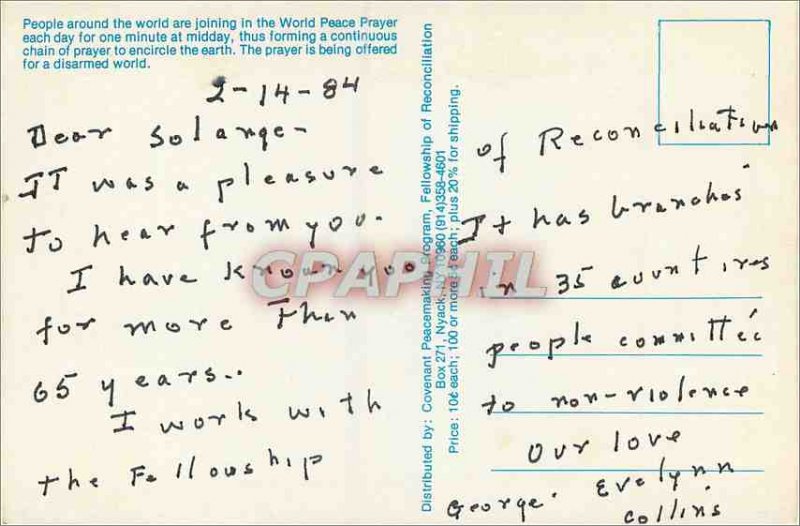 People around the world are joining in the World Peace Prayer
each day for one minute at midday, thus forming a continuous
chain of prayer to encircle the earth. The prayer is being offered
for a disarmed world.
2-14-84
Dear Solange-
IT was a pleasure
to hear from you.
I have known you
for more Than
65 years..
I work with
the Fellowship
Distributed by: Covenant Peacemaking Program, Fellowship of Reconciliation
Box 271, Nyack, NY 10960 (914)358-4601
Price: 10¢ each; 100 or more each; plus 20% for shipping.
of Reconciliation
It has branches
in 35 countires
people committed
to non-violence
Our love
George. Evelynn
Collins
CPAPHIL